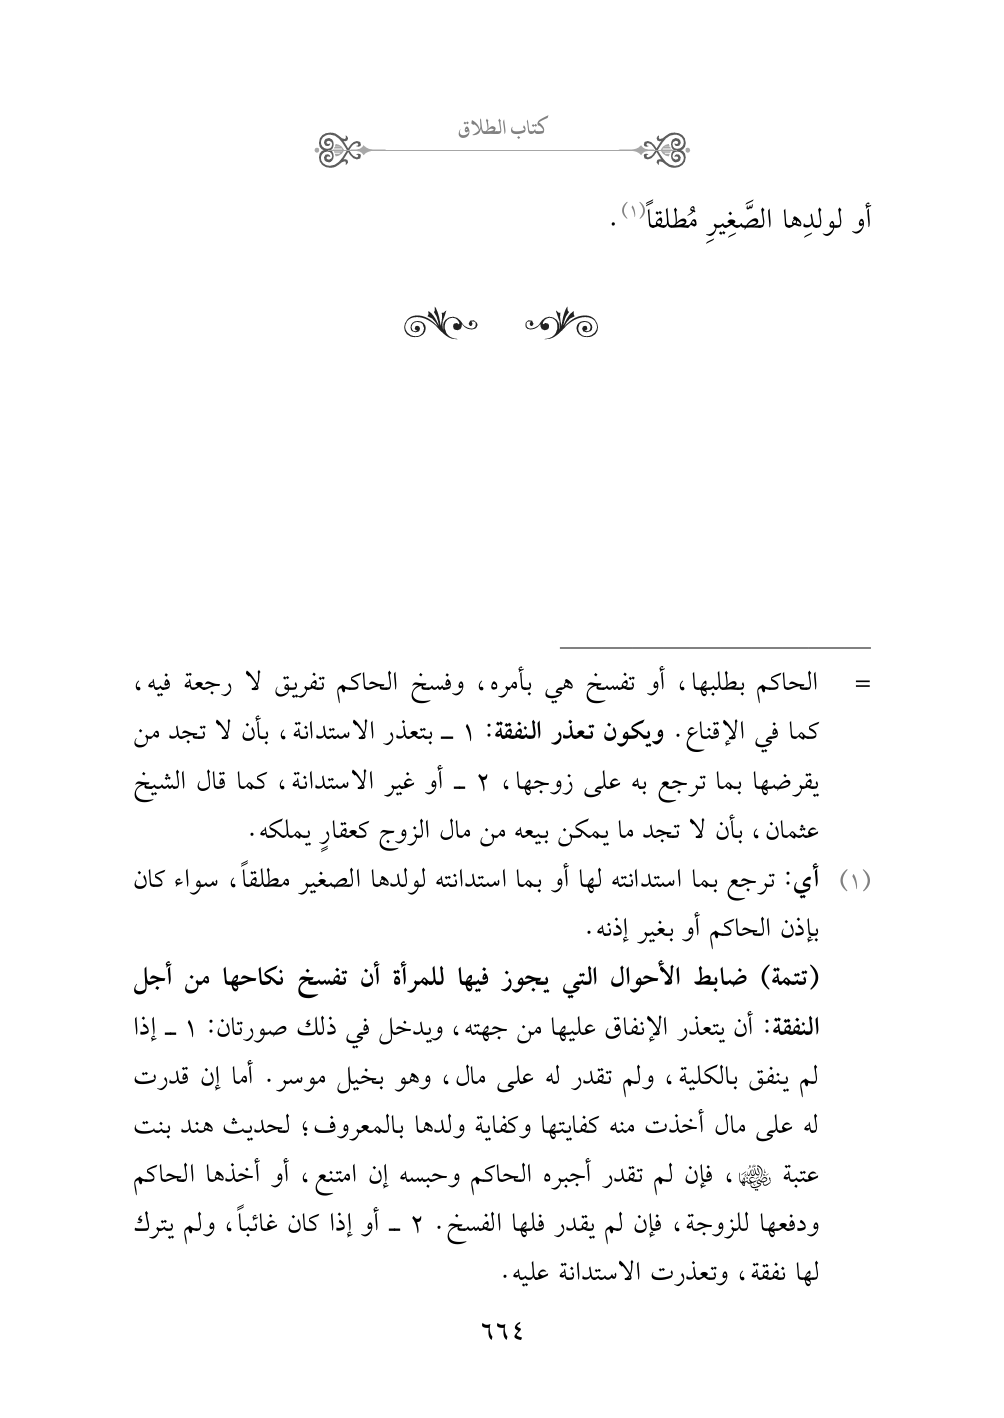 كتاب الطلاق
أو لولدِها الصَّغِيرِ مُطلقاً(١).
= الحاكم بطلبها، أو تفسخ هي بأمره، وفسخ الحاكم تفريق لا رجعة فيه،
كما في الإقناع. ويكون تعذر النفقة: ١ ـ بتعذر الاستدانة، بأن لا تجد من
يقرضها بما ترجع به على زوجها، ٢ ـ أو غير الاستدانة، كما قال الشيخ
عثمان، بأن لا تجد ما يمكن بيعه من مال الزوج كعقارٍ يملكه.
(١) أي: ترجع بما استدانته لها أو بما استدانته لولدها الصغير مطلقاً، سواء كان
بإذن الحاكم أو بغير إذنه.
(تتمة) ضابط الأحوال التي يجوز فيها للمرأة أن تفسخ نكاحها من أجل
النفقة: أن يتعذر الإنفاق عليها من جهته، ويدخل في ذلك صورتان: ١ ـ إذا
لم ينفق بالكلية، ولم تقدر له على مال، وهو بخيل موسر. أما إن قدرت
له على مال أخذت منه كفايتها وكفاية ولدها بالمعروف؛ لحديث هند بنت
عتبة رضي الله عنها، فإن لم تقدر أجبره الحاكم وحبسه إن امتنع، أو أخذها الحاكم
ودفعها للزوجة، فإن لم يقدر فلها الفسخ. ٢ ـ أو إذا كان غائباً، ولم يترك
لها نفقة، وتعذرت الاستدانة عليه.
٦٦٤